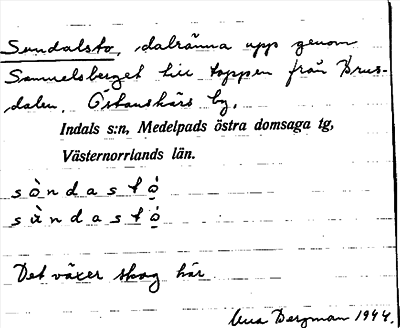 Sundalsto, dalränna upp genom
Samuelsberget till toppen från Brus-
dalen, Östanskärs by,
Indals s:n, Medelpads östra domsaga tg,
Västernorrlands län.
s ò n d a s t ọ́
s ù n d a s t ọ́
Det växer skog här
Bergman 1944.